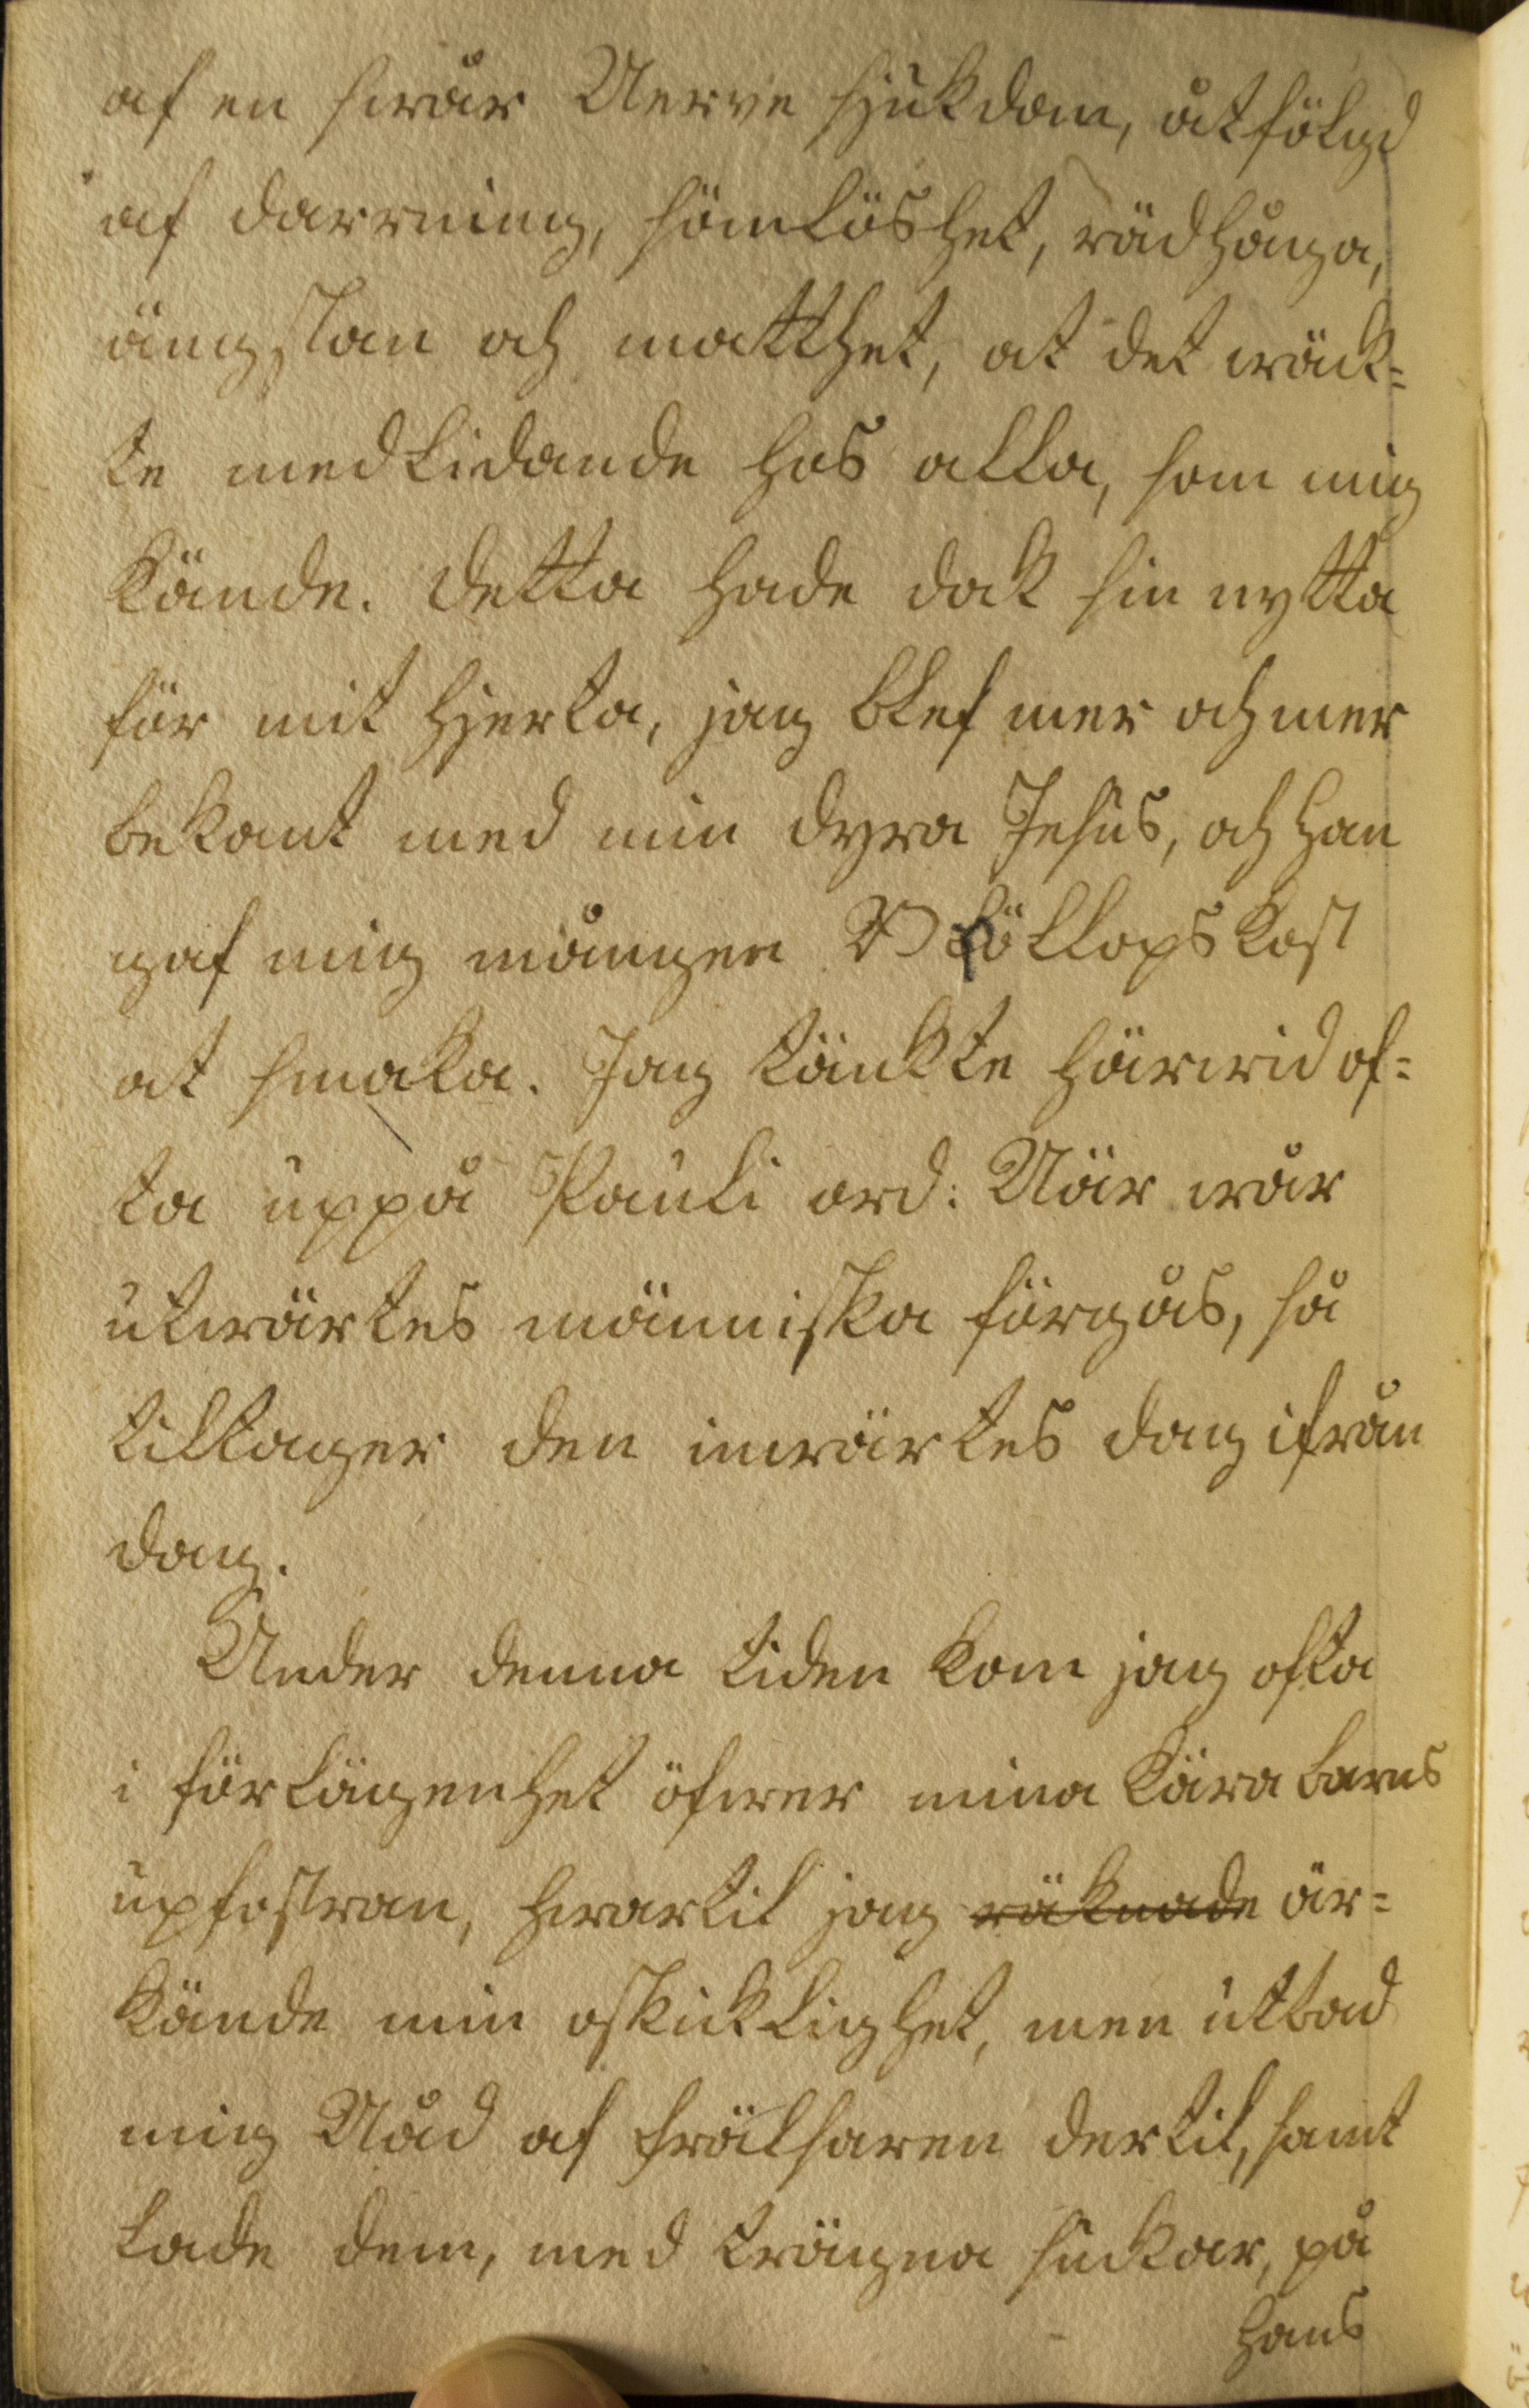 af en swår Nerve sjukdom, åtfölgd
af darrning, sömlöshet, rädhåga,
ängslan och matthet, at det wäck=
te medlidande hos alla, som mig
kände. Detta hade dock sin nytta
för mit hjerta, jag blef mer och mer
bekant med min dyra Jesus, och han
gaf mig mången Bröllopskost
at smaka. Jag tänkte härwid of=
ta uppå Pauli ord: När wår
utwärtes människa förgås, så
tilltager den inwärtes dag ifrån
dag.
Under denna tiden kom jag ofta
i förlägenhet öfwer mina kära barns
upfostran, hwartil jag räknade är=
kände min oskicklighet, men utbad
mig Nåd af Frälsaren dertil, samt
lade dem, med trägna suckar, på
hans